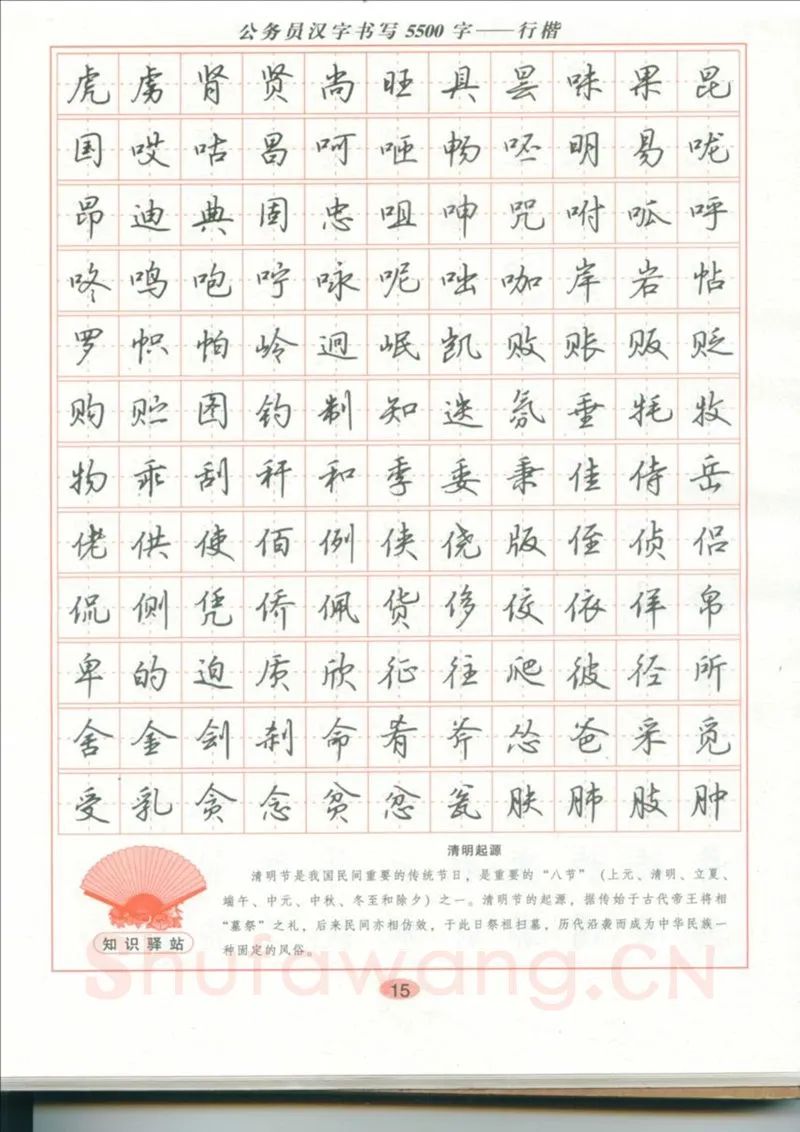 公务员汉字书写5500字——行楷
虎虏肾贤尚旺具昙味果昆
国哎咕昌呵咂畅呸明易咙
昂迪典固忠咀呻咒咐呱呼
咚鸣咆咛咏呢咄咖岸岩帖
罗帜帕岭迥岷凯败账贩贬
购贮图钓制知迭氛垂牦牧
物乖刮秆和季委秉佳侍岳
佬供使佰例侠侥版侄侦侣
侃侧凭侨佩货侈佼依佯帛
卑的迫质欣征往爬彼径所
舍金刽刹命肴斧怂爸采觅
受乳贪念贫忿瓮肤肺肢肿
清明起源
清明节是我国民间重要的传统节日，是重要的“八节”（上元、清明、立夏、
端午、中元、中秋、冬至和除夕）之一。清明节的起源，据传始于古代帝王将相
“墓祭”之礼，后来民间亦相仿效，于此日祭祖扫墓，历代沿袭而成为中华民族一
种固定的风俗。
知识驿站
shufawang.CN
15